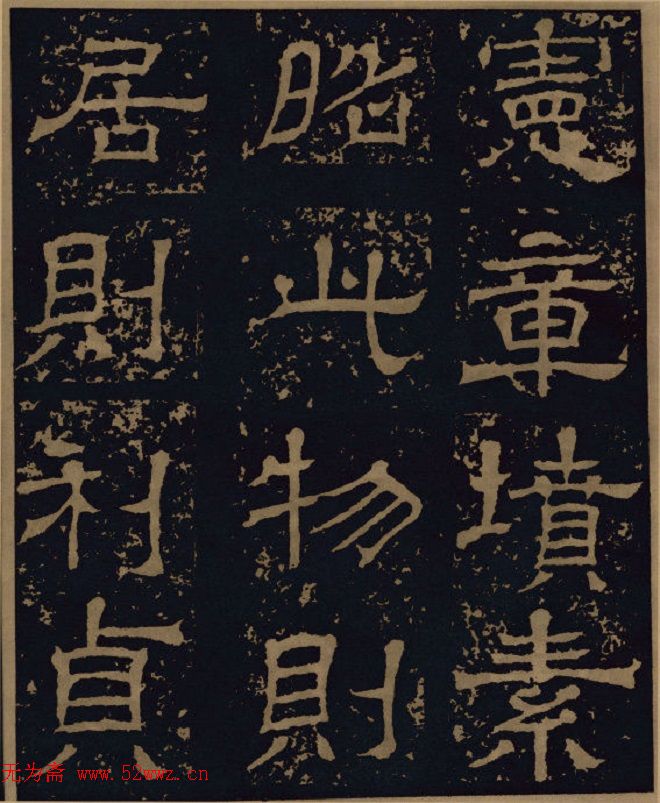 憲章墳素
昭此物則
居則利貞
无为斋 www.52wwz.cn